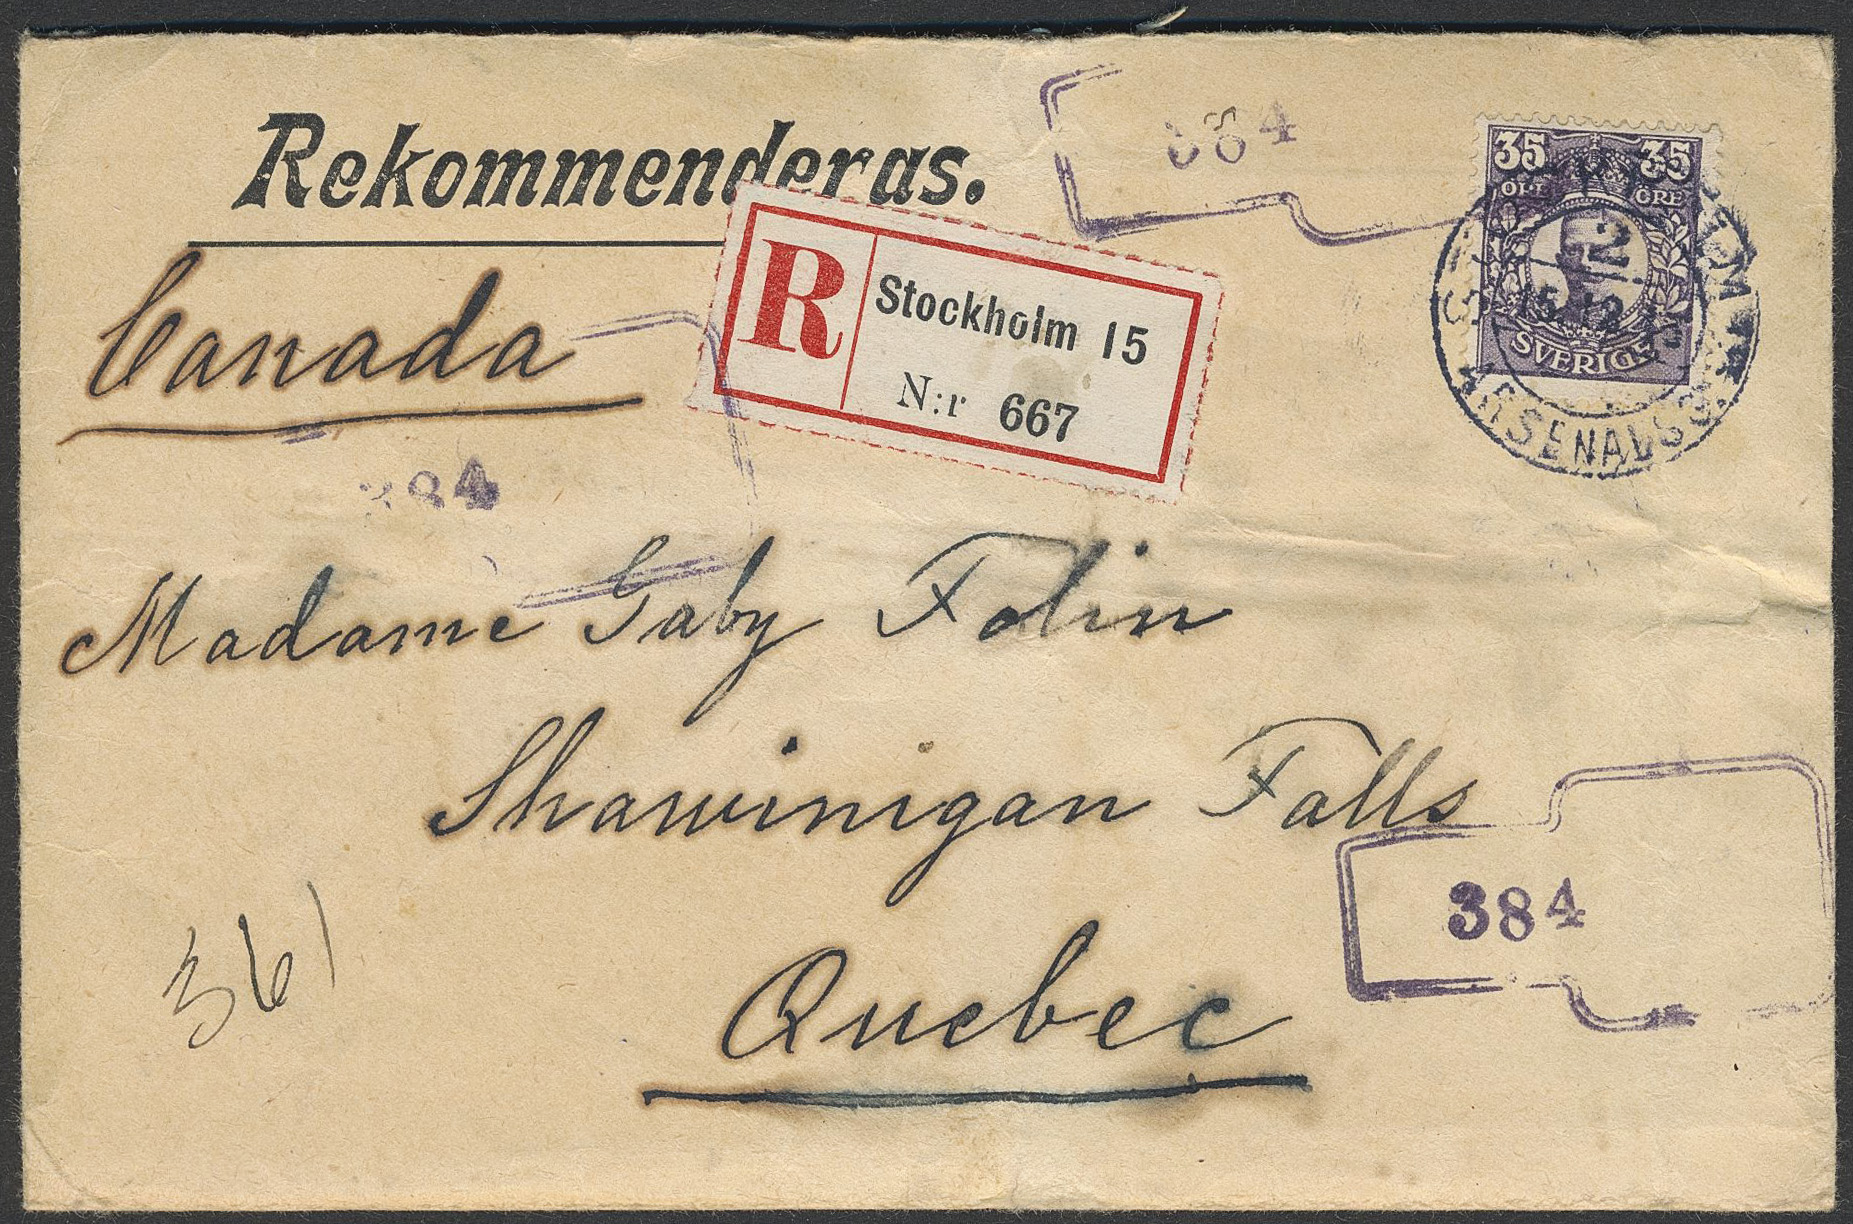 Rekommenderas.
384
35 35
ÖRE ÖRE
SVERIGE
ARSENALSG.
R Stockholm 15
N:r 667
Canada
384
Madame Gaby Folin
Shawinigan Falls
384
361
Quebec